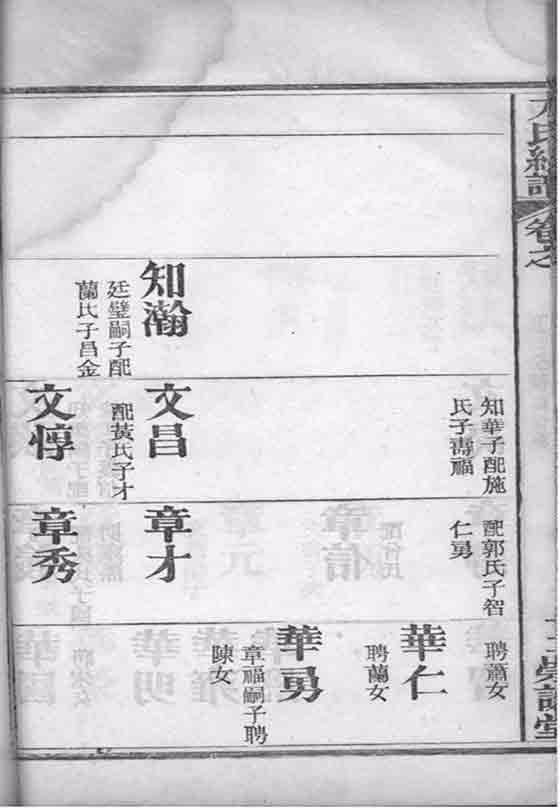 氏總譜
卷之
知瀚
廷璧嗣子配
蘭氏子昌金
知華子配施
氏子壽福
文昌
配黃氏子才
文惇
配郭氏子智
仁勇
章才
章秀
聘蕭女
華仁
聘蘭女
華勇
章福嗣子聘
陳女